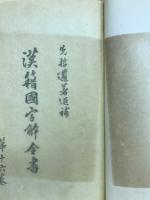 先哲遺著追補
漢籍國字解全書
第十六巻